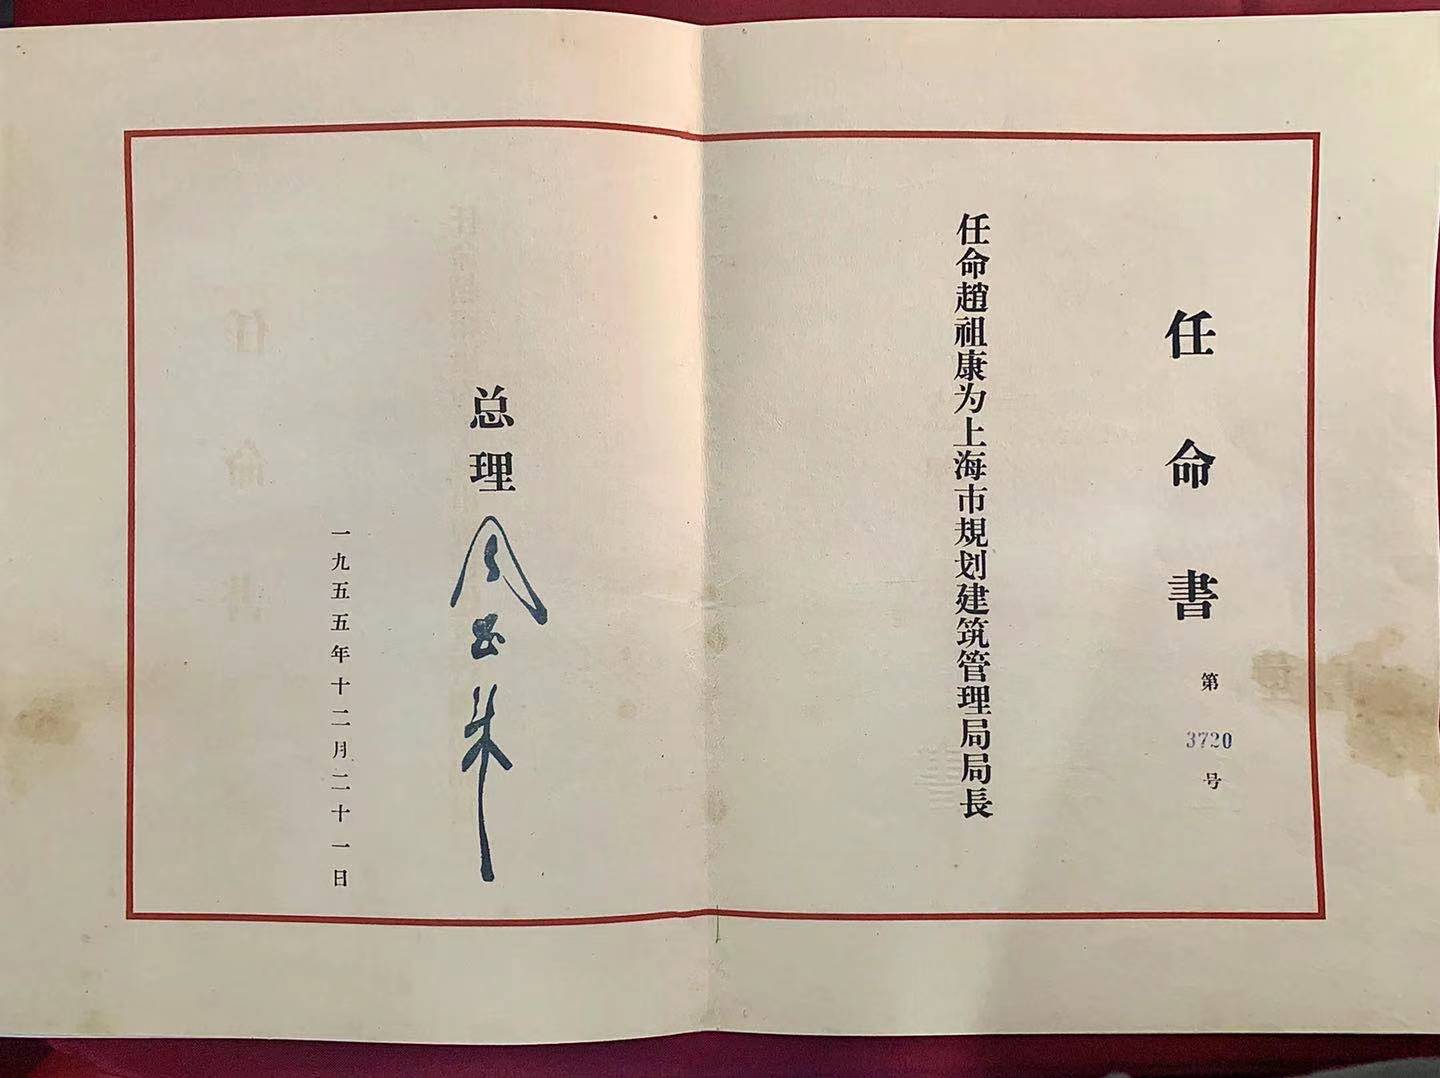 任命書
第
3720
号
任命趙祖康为上海市規划建筑管理局局長
总理 周恩来
一九五五年十二月二十一日